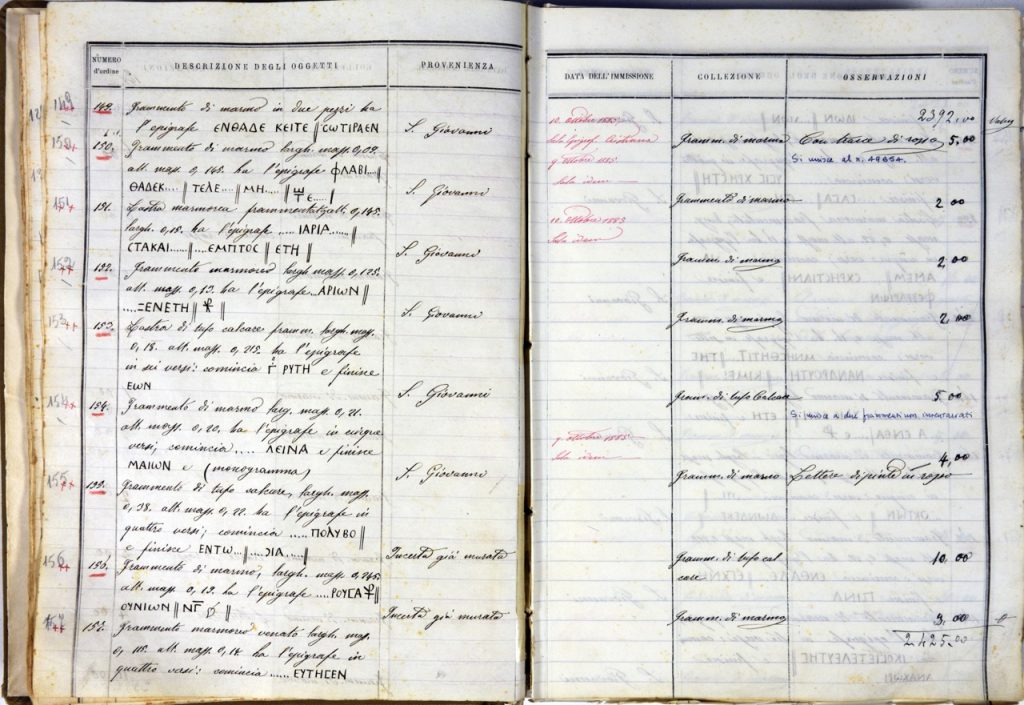 NUMERO
d'ordine
DESCRIZIONE DEGLI OGGETTI
PROVENIENZA
149
149. Frammento di marmo in due pezzi ha
l'epigrafe ΕΝΘΑΔΕ ΚΕΙΤΕ || CΩΤΙΡΑΕΝ
S. Giovanni
150
150. Frammento di marmo largh. mass. 0,09.
alt. mass. 0,145. ha l'epigrafe ΦΛΑΒΙ....||
ΘΑΔΕΚ.... || ΤΕΛΕ .... ΜΗ....||
S. Giovanni
151
151. Lastra marmorea frammentata, alt. 0,145.
largh. 0,18. ha l'epigrafe .... ΙΑΡΙΑ....||
CΤΑΚΑΙ......||....ΕΜΠΤΟC || ΕΤΗ ||
S. Giovanni
152
152. Frammento marmoreo largh. mass. 0,125.
alt. mass. 0,13. ha l'epigrafe ..ΑΡΙΩΝ||
....ΞΕΝΕΤΗ || ☧ ||
S. Giovanni
153
153. Lastra di tufo calcare framm. largh. mass.
0,18. alt. mass. 0,215. ha l'epigrafe
in sei versi: comincia Γ ΡΥΤΗ e finisce
ΕΩΝ
S. Giovanni
154
154. Frammento di marmo larg. mass. 0,21.
alt. mass. 0,20. ha l'epigrafe in cinque
versi; comincia ..... ΛΕΙΝΑ e finisce
ΜΑΙΩΝ e (monogramma)
S. Giovanni
155
155. Frammento di tufo calcare, largh. mass.
0,38. alt. mass. 0,22. ha l'epigrafe in
quattro versi; comincia .....ΠΟΛΥΒΟ||
e finisce ΕΝΤΩ....ΙΑ....||
Incerta già murata
156
156. Frammento di marmo, largh. mass. 0,245.
alt. mass. 0,13. ha l'epigrafe ....ΡΟΥCΑ☧||
ΟΥΝΙΩΝ || ΝΓ
Incerta già murata
157
157. Frammento marmoreo venato largh. mass.
0,115. alt. mass. 0,14 ha l'epigrafe in
quattro versi: comincia ...... ΕΥΤΗCΕΝ
DATA DELL'IMMISSIONE
COLLEZIONE
OSSERVAZIONI
2392,00
10. Ottobre 1885
Framm. di marmo
Con tracce di rosso
5,00
Si unisce al n. 49854.
9 Ottobre 1885.
Sala idem
Frammento di marmo
2,00
10. Ottobre 1885
Sala idem
Framm. di marmo
2,00
Framm. di marmo
2,00
Fram. di tufo calcare
5,00
Si unisce a due frammenti non inventariati
9. Ottobre 1885
Sala idem
4,00
Framm. di marmo
Lettere dipinte in rosso
Framm. di tufo cal
care
10,00
Framm. di marmo
3,00
2425,00